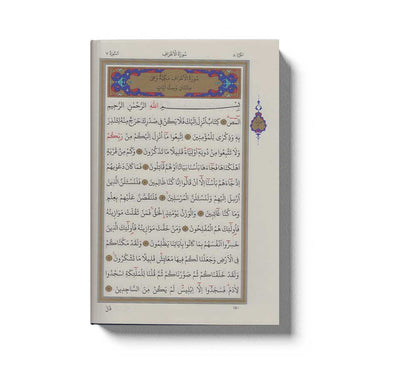 سُورَةُ الْاَعْرَافِ
سُورَةُ الْاَعْرَافِ مَكِّيَّةٌ وَهِيَ
مِائَتَانِ وَسِتُّ اٰيَاتٍ
بِسْمِ اللّٰهِ الرَّحْمٰنِ الرَّحِيمِ
الٓمٓصٓ كِتَابٌ اُنْزِلَ اِلَيْكَ فَلَا يَكُنْ فِي صَدْرِكَ حَرَجٌ مِنْهُ لِتُنْذِرَ
بِهِ وَذِكْرٰى لِلْمُؤْمِنِينَ اِتَّبِعُوا مَا اُنْزِلَ اِلَيْكُمْ مِنْ رَبِّكُمْ
وَلَا تَتَّبِعُوا مِنْ دُونِهِ اَوْلِيَاءَ قَلِيلًا مَا تَذَكَّرُونَ وَكَمْ مِنْ قَرْيَةٍ
اَهْلَكْنَاهَا فَجَاءَهَا بَأْسُنَا بَيَاتًا اَوْ هُمْ قَائِلُونَ فَمَا كَانَ دَعْوٰيهُمْ
اِذْ جَاءَهُمْ بَأْسُنَا اِلَّا اَنْ قَالُوا اِنَّا كُنَّا ظَالِمِينَ فَلَنَسْـَٔلَنَّ الَّذِينَ
اُرْسِلَ اِلَيْهِمْ وَلَنَسْـَٔلَنَّ الْمُرْسَلِينَ فَلَنَقُصَّنَّ عَلَيْهِمْ بِعِلْمٍ
وَمَا كُنَّا غَائِبِينَ وَالْوَزْنُ يَوْمَئِذٍ الْحَقُّ فَمَنْ ثَقُلَتْ مَوَازِينُهُ
فَاُولٰئِكَ هُمُ الْمُفْلِحُونَ وَمَنْ خَفَّتْ مَوَازِينُهُ فَاُولٰئِكَ الَّذِينَ
خَسِرُوا اَنْفُسَهُمْ بِمَا كَانُوا بِاٰيَاتِنَا يَظْلِمُونَ وَلَقَدْ مَكَّنَّاكُمْ
فِي الْاَرْضِ وَجَعَلْنَا لَكُمْ فِيهَا مَعَايِشَ قَلِيلًا مَا تَشْكُرُونَ
وَلَقَدْ خَلَقْنَاكُمْ ثُمَّ صَوَّرْنَاكُمْ ثُمَّ قُلْنَا لِلْمَلٰئِكَةِ اسْجُدُوا
لِاٰدَمَ فَسَجَدُوا اِلَّا اِبْلِيسَ لَمْ يَكُنْ مِنَ السَّاجِدِينَ